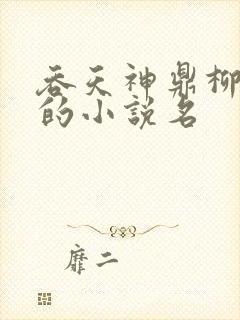 吞天神鼎柳
的小說名
靡二